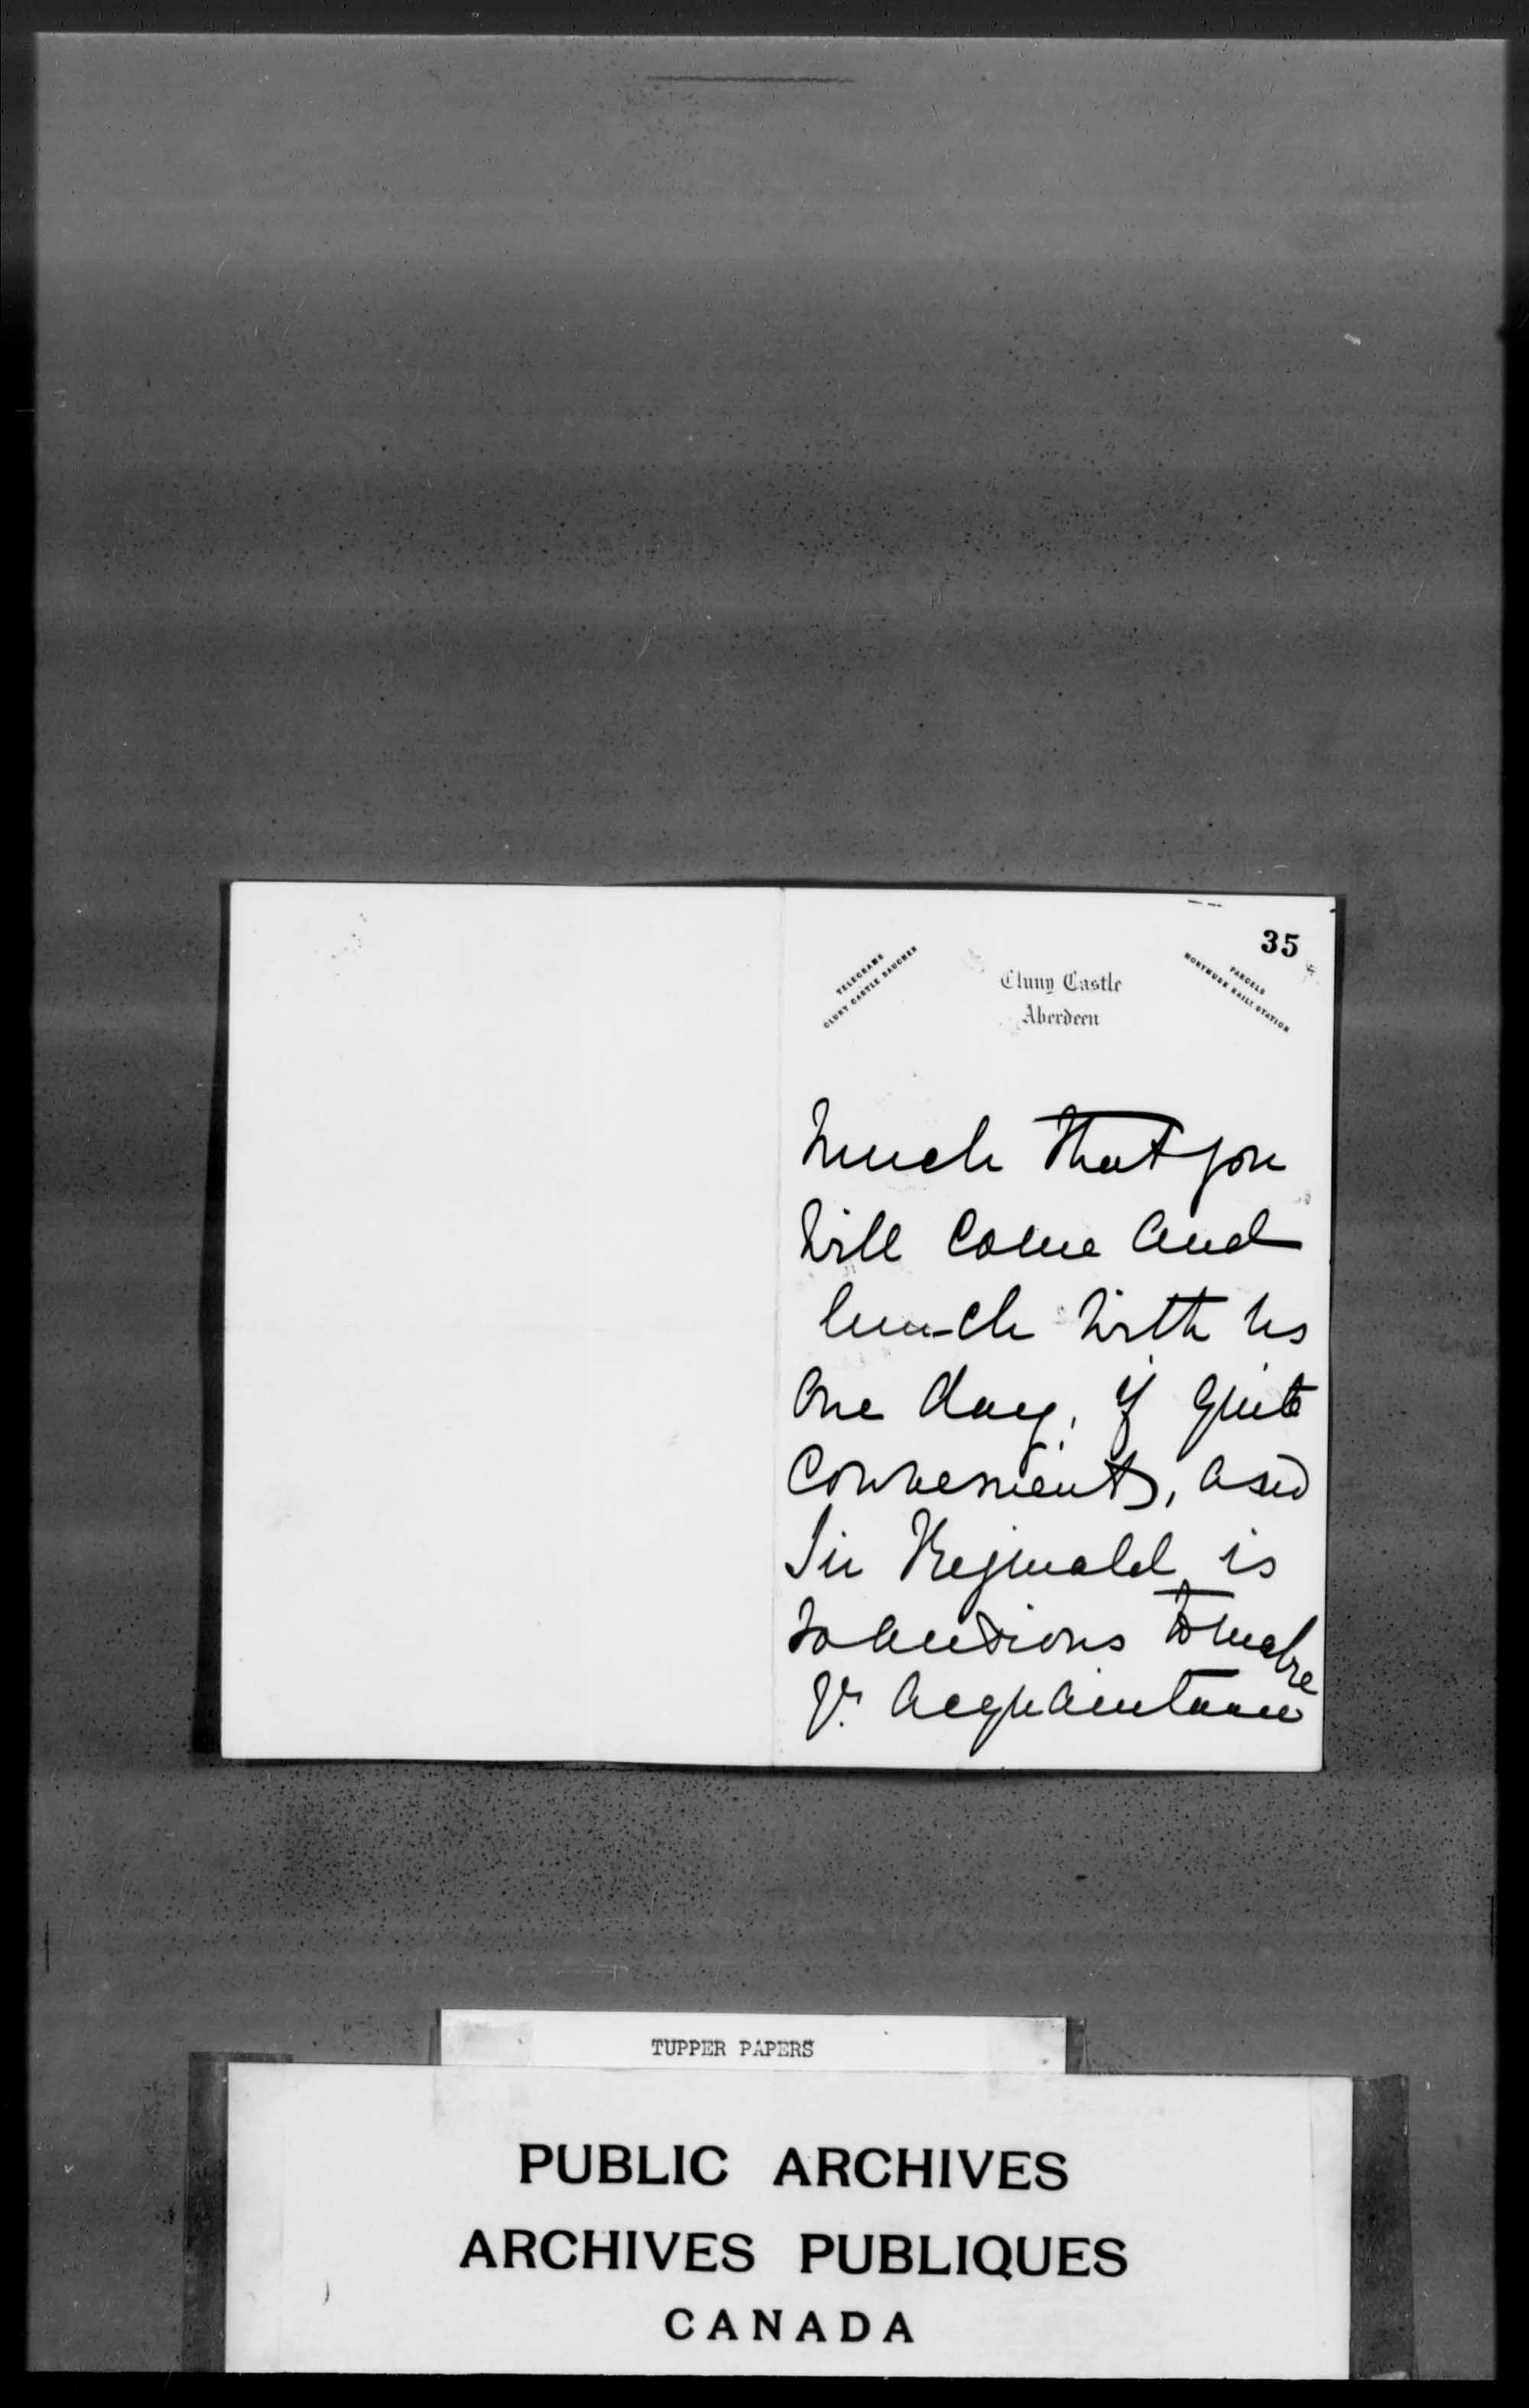 35
TELEGRAMS
CLUNY CASTLE SAUCHEN
Cluny Castle
Aberdeen
PARCELS
MONYMUSK RAILY STATION
much that you
will come and
lunch with us
one day, if quite
convenient, and
Sir Reginald is
so anxious to make
yr. acquaintance
TUPPER PAPERS
PUBLIC ARCHIVES
ARCHIVES PUBLIQUES
CANADA